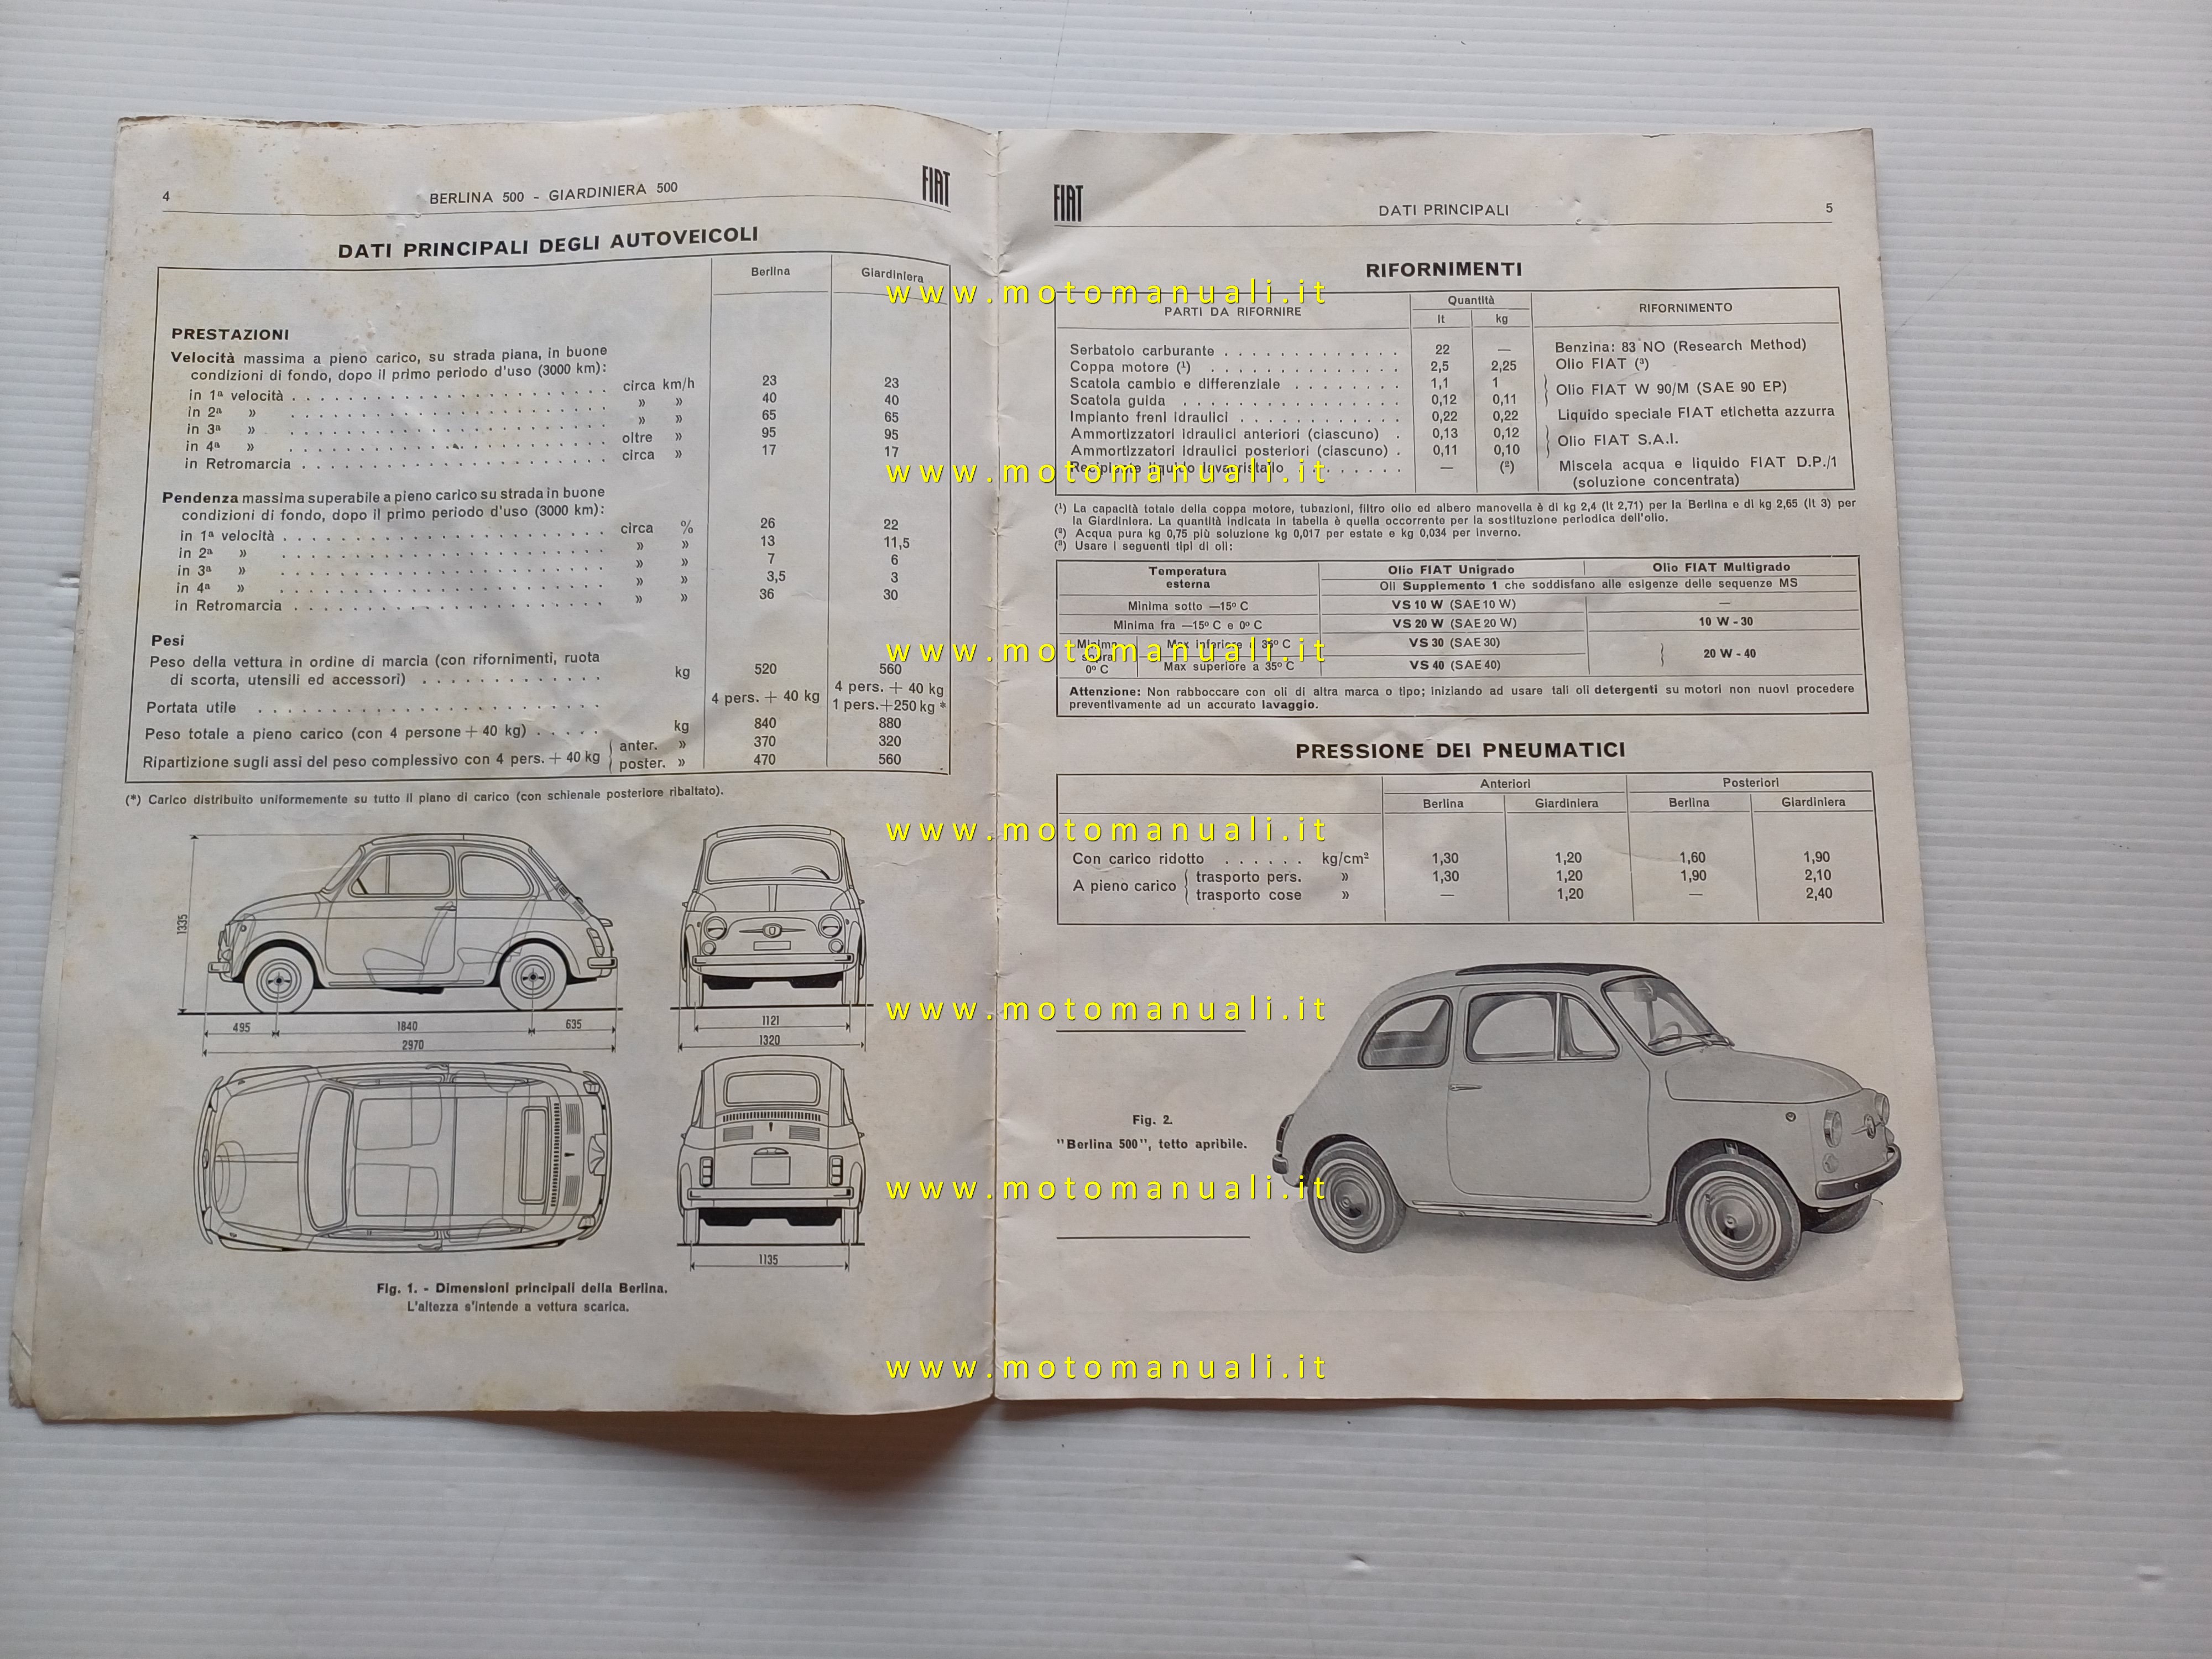 4
BERLINA 500 - GIARDINIERA 500
FIAT
DATI PRINCIPALI DEGLI AUTOVEICOLI
Berlina Giardiniera
PRESTAZIONI
Velocità massima a pieno carico, su strada piana, in buone
condizioni di fondo, dopo il primo periodo d'uso (3000 km):
in 1ª velocità . . . circa km/h 23 23
in 2ª » . . . » » 40 40
in 3ª » . . . » » 65 65
in 4ª » . . . oltre » 95 95
in Retromarcia . . . circa » 17 17
Pendenza massima superabile a pieno carico su strada in buone
condizioni di fondo, dopo il primo periodo d'uso (3000 km):
in 1ª velocità . . . circa % 26 22
in 2ª » . . . » » 13 11,5
in 3ª » . . . » » 7 6
in 4ª » . . . » » 3,5 3
in Retromarcia . . . » » 36 30
Pesi
Peso della vettura in ordine di marcia (con rifornimenti, ruota
di scorta, utensili ed accessori) . . . kg 520 560
Portata utile . . . 4 pers. + 40 kg 4 pers. + 40 kg
1 pers.+250 kg *
Peso totale a pieno carico (con 4 persone + 40 kg) . . . kg 840 880
Ripartizione sugli assi del peso complessivo con 4 pers. + 40 kg anter. » 370 320
poster. » 470 560
(*) Carico distribuito uniformemente su tutto il piano di carico (con schienale posteriore ribaltato).
1335
495 1840 635
2970
1121
1320
1135
Fig. 1. - Dimensioni principali della Berlina.
L'altezza s'intende a vettura scarica.
FIAT
DATI PRINCIPALI
5
RIFORNIMENTI
PARTI DA RIFORNIRE Quantità RIFORNIMENTO
lt kg
Serbatoio carburante . . . 22 — Benzina: 83 NO (Research Method)
Coppa motore (¹) . . . 2,5 2,25 Olio FIAT (³)
Scatola cambio e differenziale . . . 1,1 1 Olio FIAT W 90/M (SAE 90 EP)
Scatola guida . . . 0,12 0,11
Impianto freni idraulici . . . 0,22 0,22 Liquido speciale FIAT etichetta azzurra
Ammortizzatori idraulici anteriori (ciascuno) . 0,13 0,12 Olio FIAT S.A.I.
Ammortizzatori idraulici posteriori (ciascuno) . 0,11 0,10
Recipiente liquido lavacristallo . . . — (²) Miscela acqua e liquido FIAT D.P./1
(soluzione concentrata)
(¹) La capacità totale della coppa motore, tubazioni, filtro olio ed albero manovella è di kg 2,4 (lt 2,71) per la Berlina e di kg 2,65 (lt 3) per
la Giardiniera. La quantità indicata in tabella è quella occorrente per la sostituzione periodica dell'olio.
(²) Acqua pura kg 0,75 più soluzione kg 0,017 per estate e kg 0,034 per inverno.
(³) Usare i seguenti tipi di oli:
Temperatura esterna Olio FIAT Unigrado Olio FIAT Multigrado
Oli Supplemento 1 che soddisfano alle esigenze delle sequenze MS
Minima sotto —15º C VS 10 W (SAE 10 W) —
Minima fra —15º C e 0º C VS 20 W (SAE 20 W) 10 W - 30
Minima sopra 0º C Max inferiore a 35º C VS 30 (SAE 30) 20 W - 40
Max superiore a 35º C VS 40 (SAE 40)
Attenzione: Non rabboccare con oli di altra marca o tipo; iniziando ad usare tali oli detergenti su motori non nuovi procedere
preventivamente ad un accurato lavaggio.
PRESSIONE DEI PNEUMATICI
Anteriori Posteriori
Berlina Giardiniera Berlina Giardiniera
Con carico ridotto . . . . . . kg/cm² 1,30 1,20 1,60 1,90
A pieno carico trasporto pers. » 1,30 1,20 1,90 2,10
trasporto cose » — 1,20 — 2,40
Fig. 2.
"Berlina 500", tetto apribile.
www.motomanuali.it
www.motomanuali.it
www.motomanuali.it
www.motomanuali.it
www.motomanuali.it
www.motomanuali.it
www.motomanuali.it